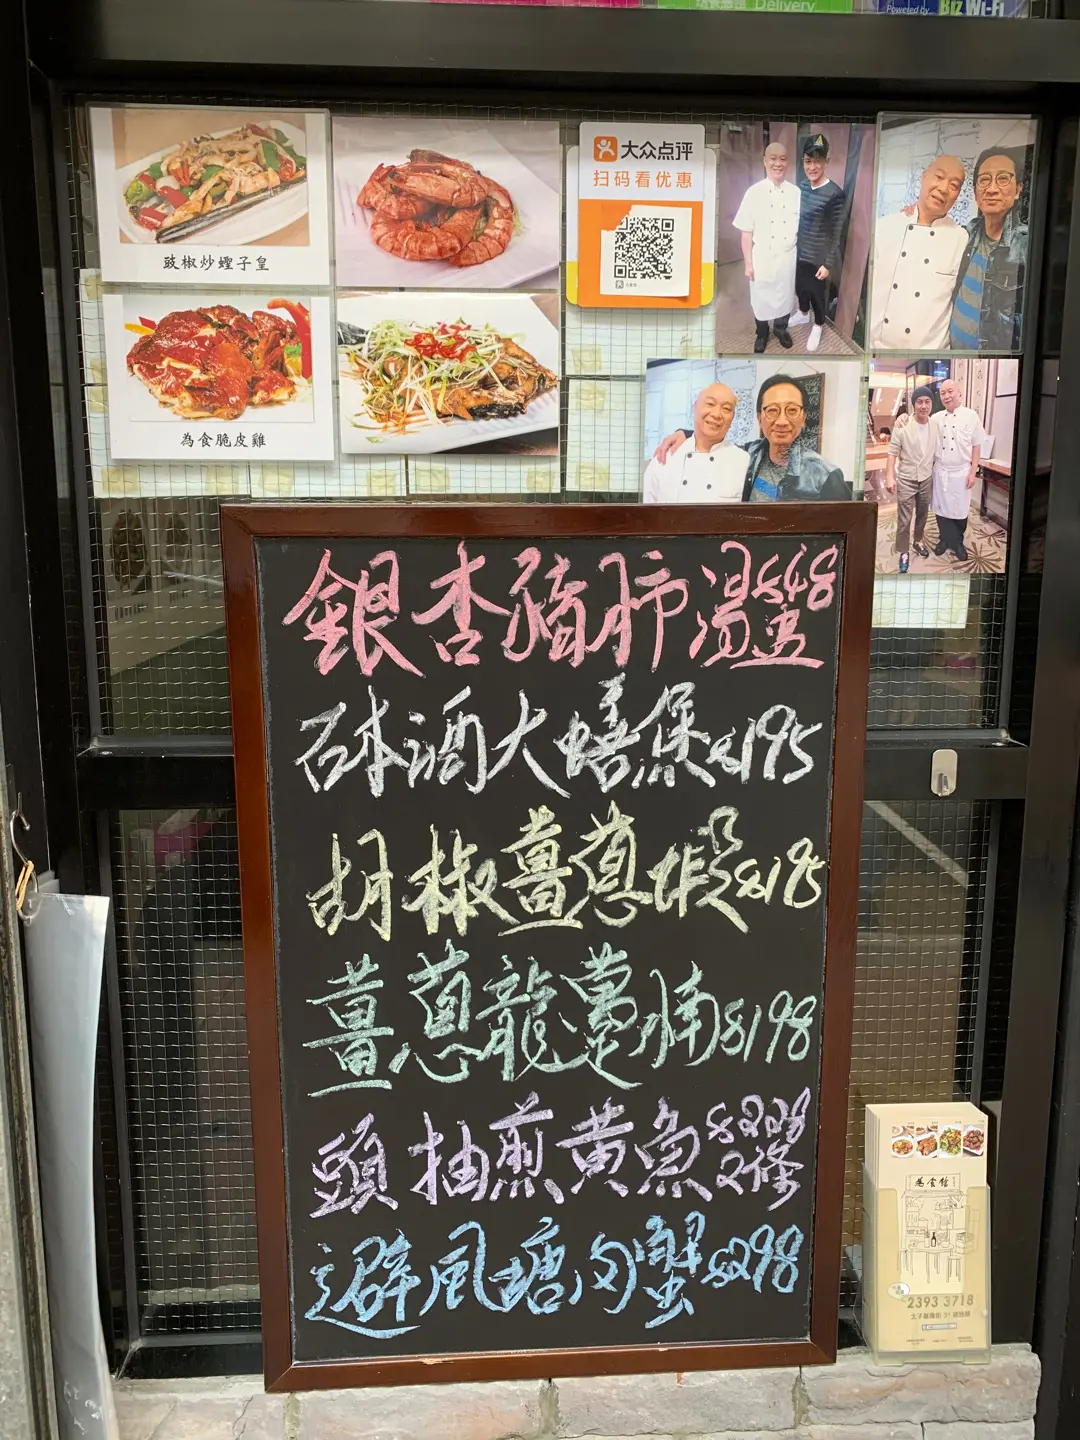 Delivery
Powered by Biz Wi-Fi
大众点评
扫码看优惠
豉椒炒蟶子皇
為食脆皮雞
銀杏豬肺湯$48
盅
砵酒大蠔煲$195
胡椒薑蔥蝦$195
薑蔥龍躉腩$198
頭抽煎黃魚$228
2條
避風塘肉蟹$298
為食館
2393 3718